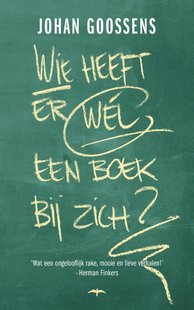 JOHAN GOOSSENS
WIE HEEFT
ER WEL
EEN BOEK
BIJ ZICH?
'Wat een ongelooflijk rake, mooie en lieve verhalen!'
-Herman Finkers